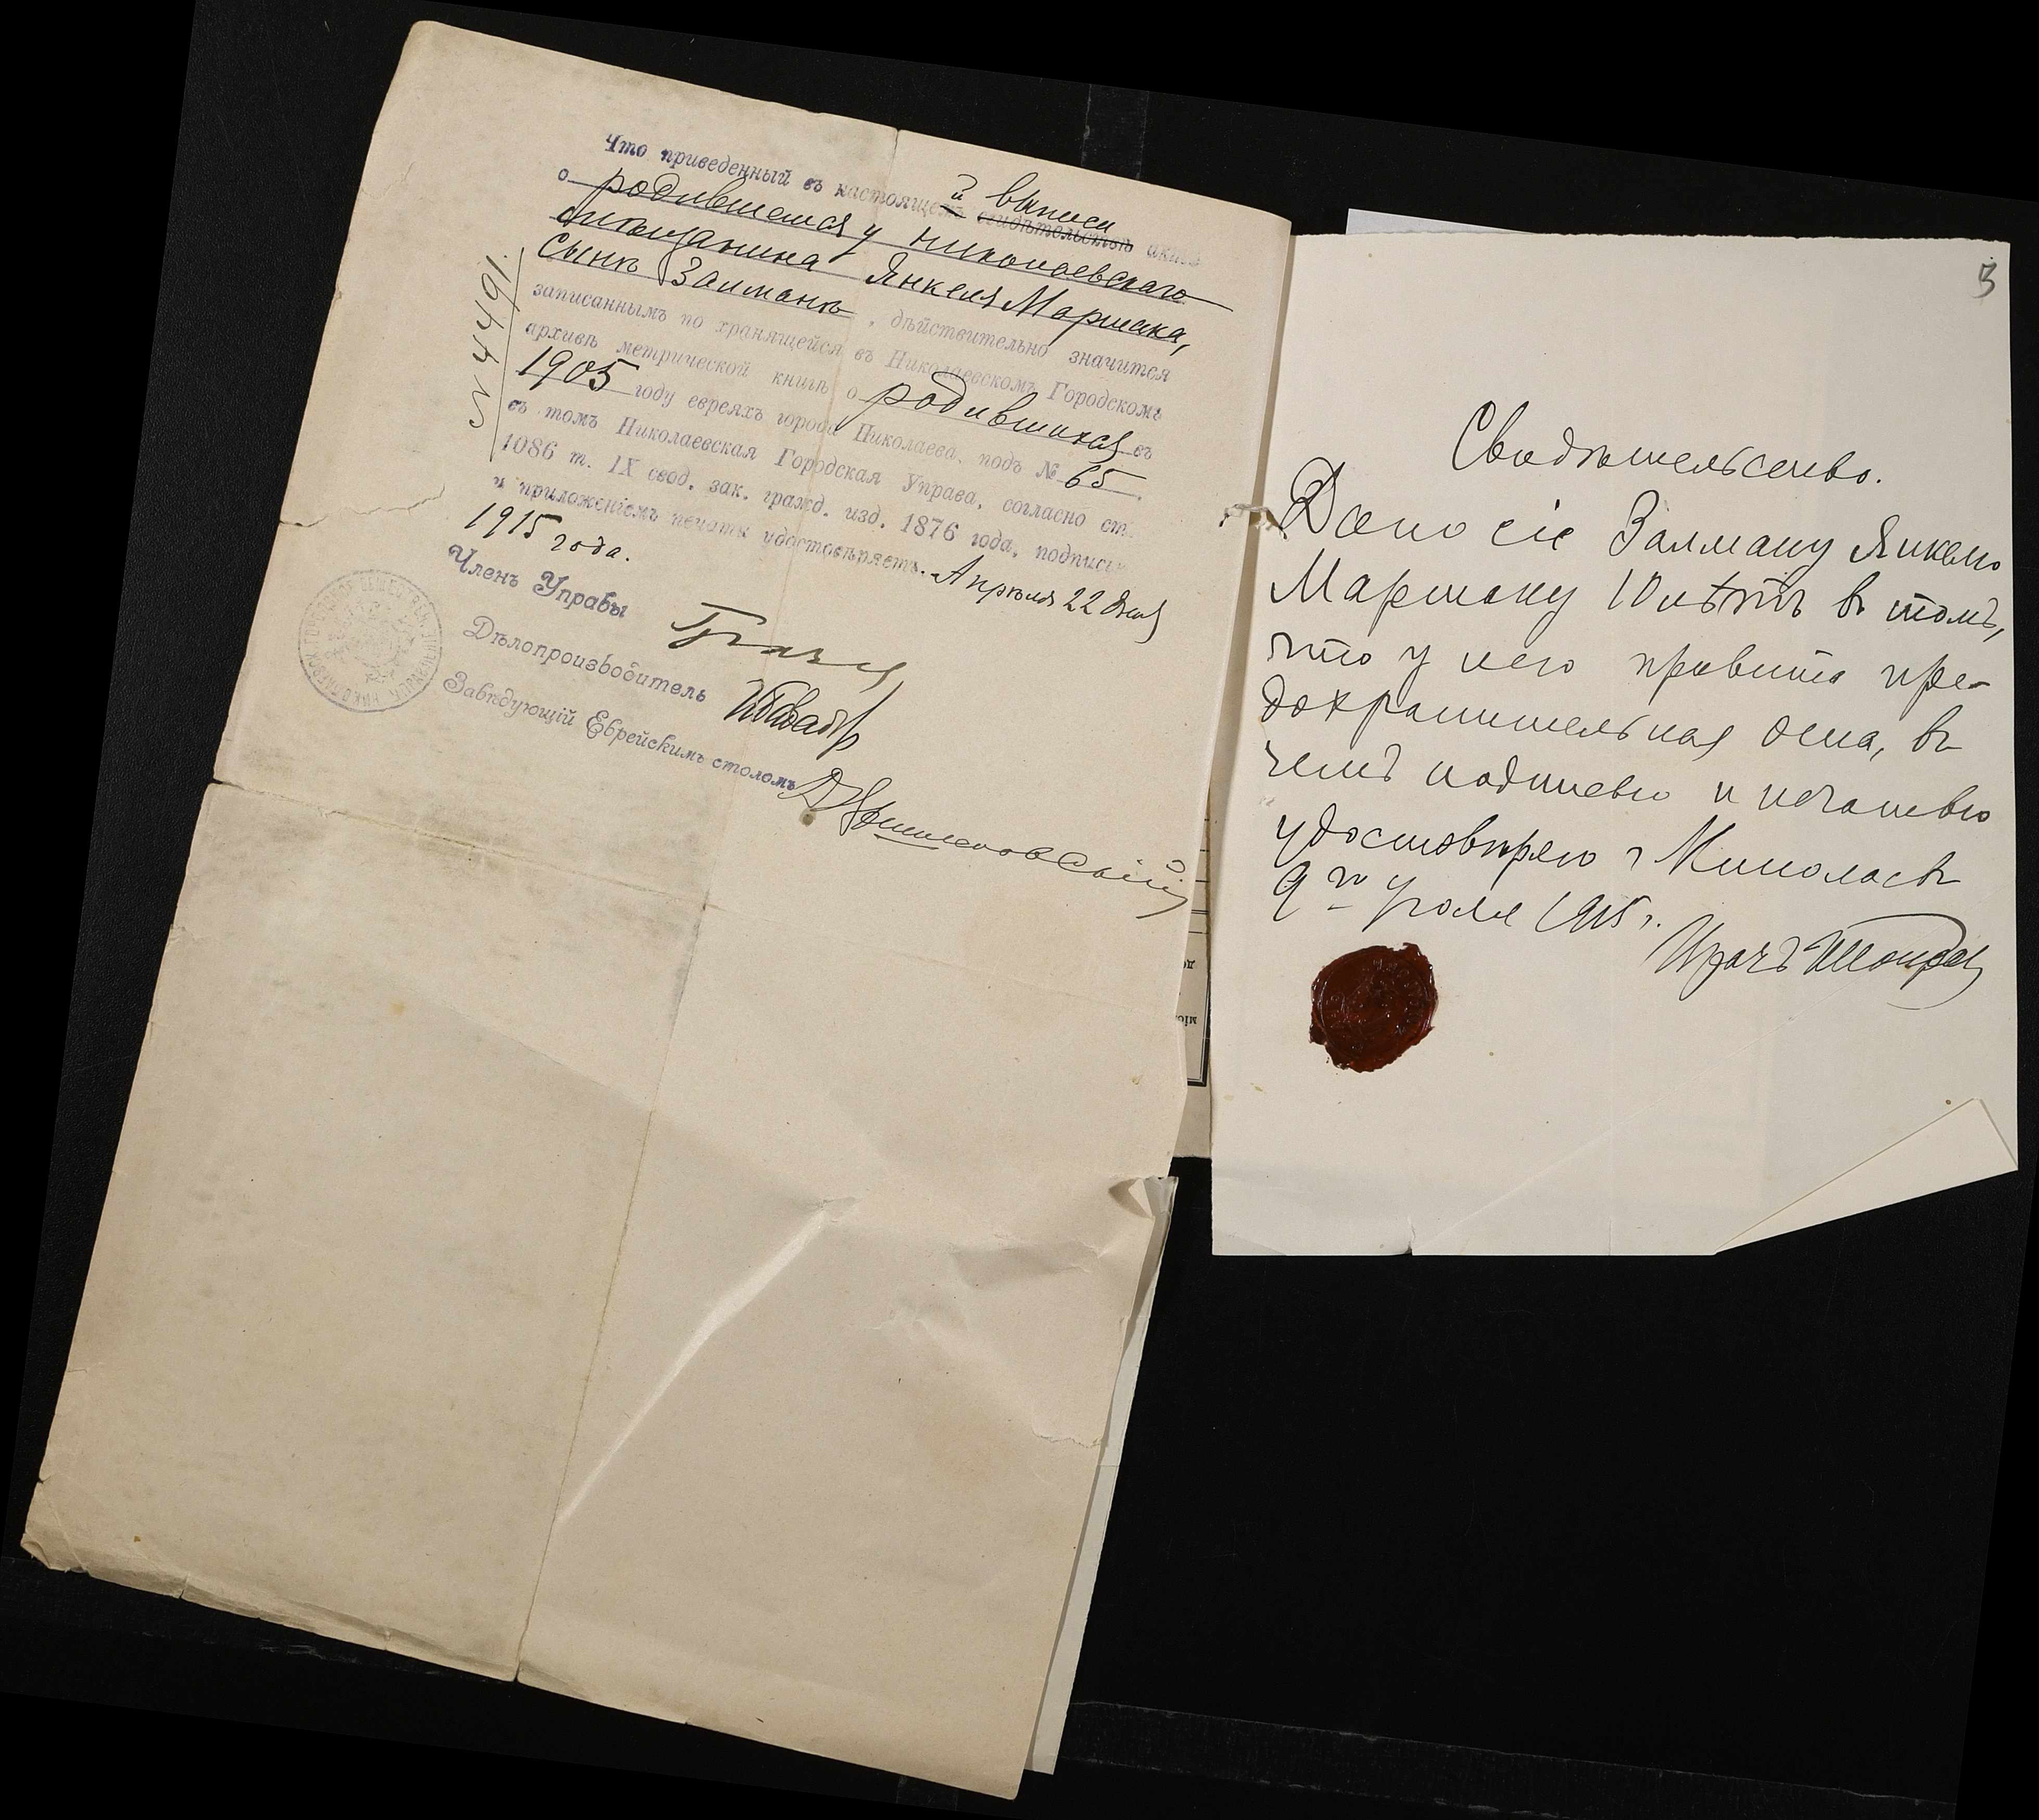 Что приведенный въ настоящемъ свидѣтельствѣ актъ
й выписи
о родившемся у николаевскаго
мѣщанина Янкеля Маршака,
сынѣ Залманѣ, дѣйствительно значится
записаннымъ по хранящейся въ Николаевскомъ Городскомъ
архивѣ метрической книгѣ о родившихся въ
1905 году евреяхъ города Николаева, подъ № 65.
въ томъ Николаевская Городская Управа, согласно ст.
1086 т. IX свод. зак. гражд. изд. 1876 года, подписью
и приложеніемъ печати удостовѣряетъ. Апрѣля 22 дня
1915 года.
№ 4491.
Членъ Управы
Дѣлопроизводитель
Завѣдующій Еврейскимъ столомъ
3
Свидѣтельство.
Дано сіе Залману Янкелю
Маршаку 10 лѣтъ въ томъ,
что у него привита пре-
дохранительная оспа, въ
чемъ подписью и печатью
удостовѣряю г Николаевъ
9го Іюля 1915 г.
Врачъ